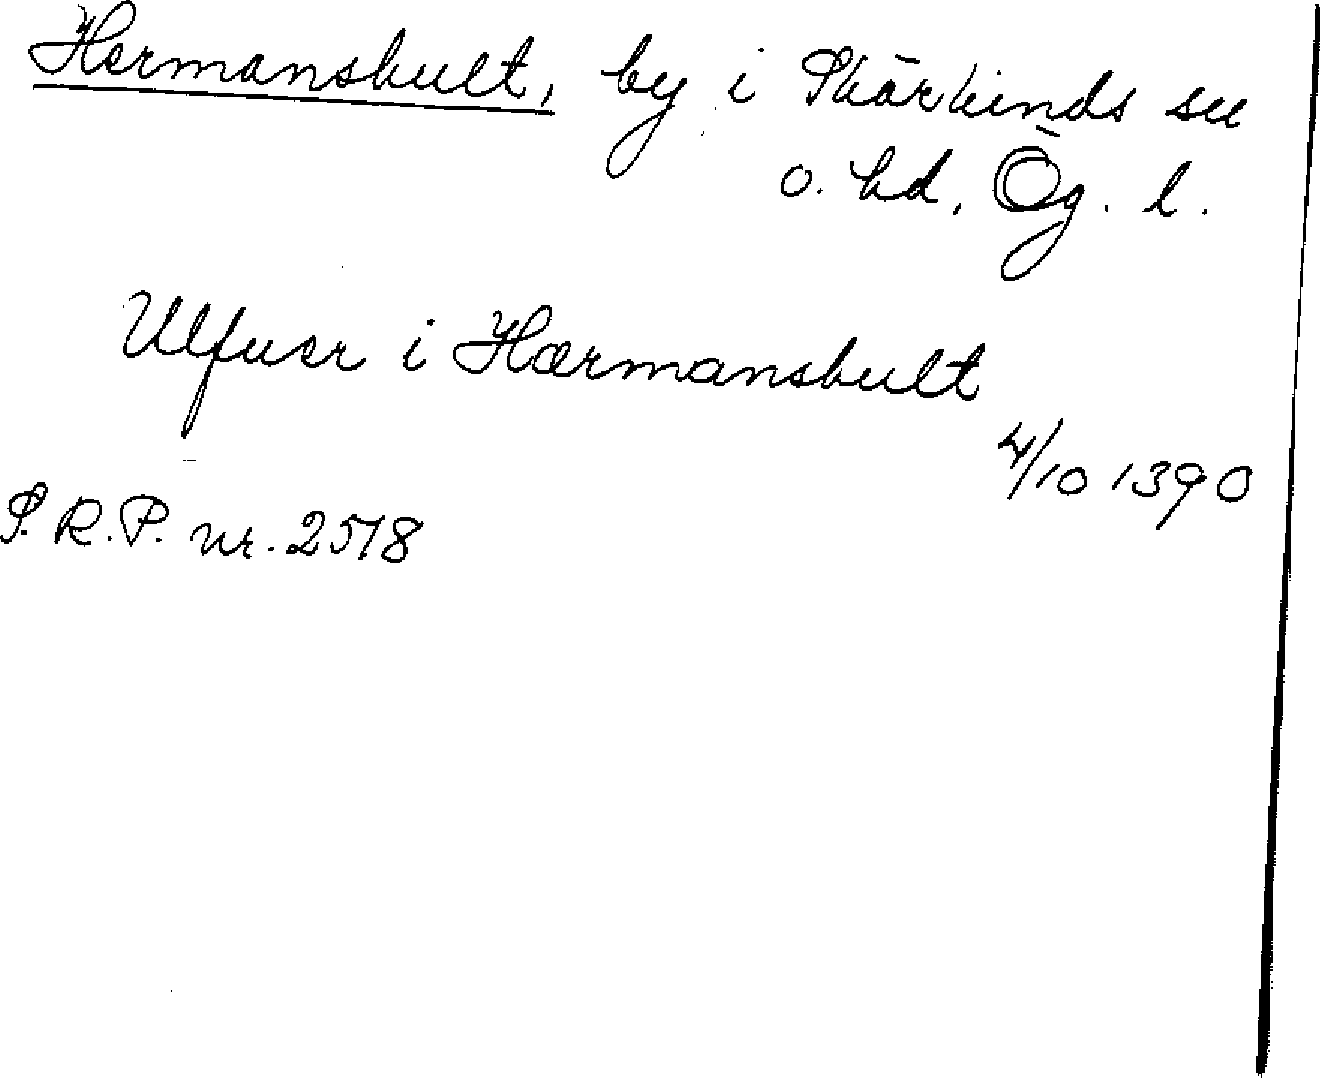 Hermanshult, by i Skärkinds sn
o. hd, Ög. l.
Ulfuer i Hærmanshult
4/10 1390
S.R.P. nr. 2518